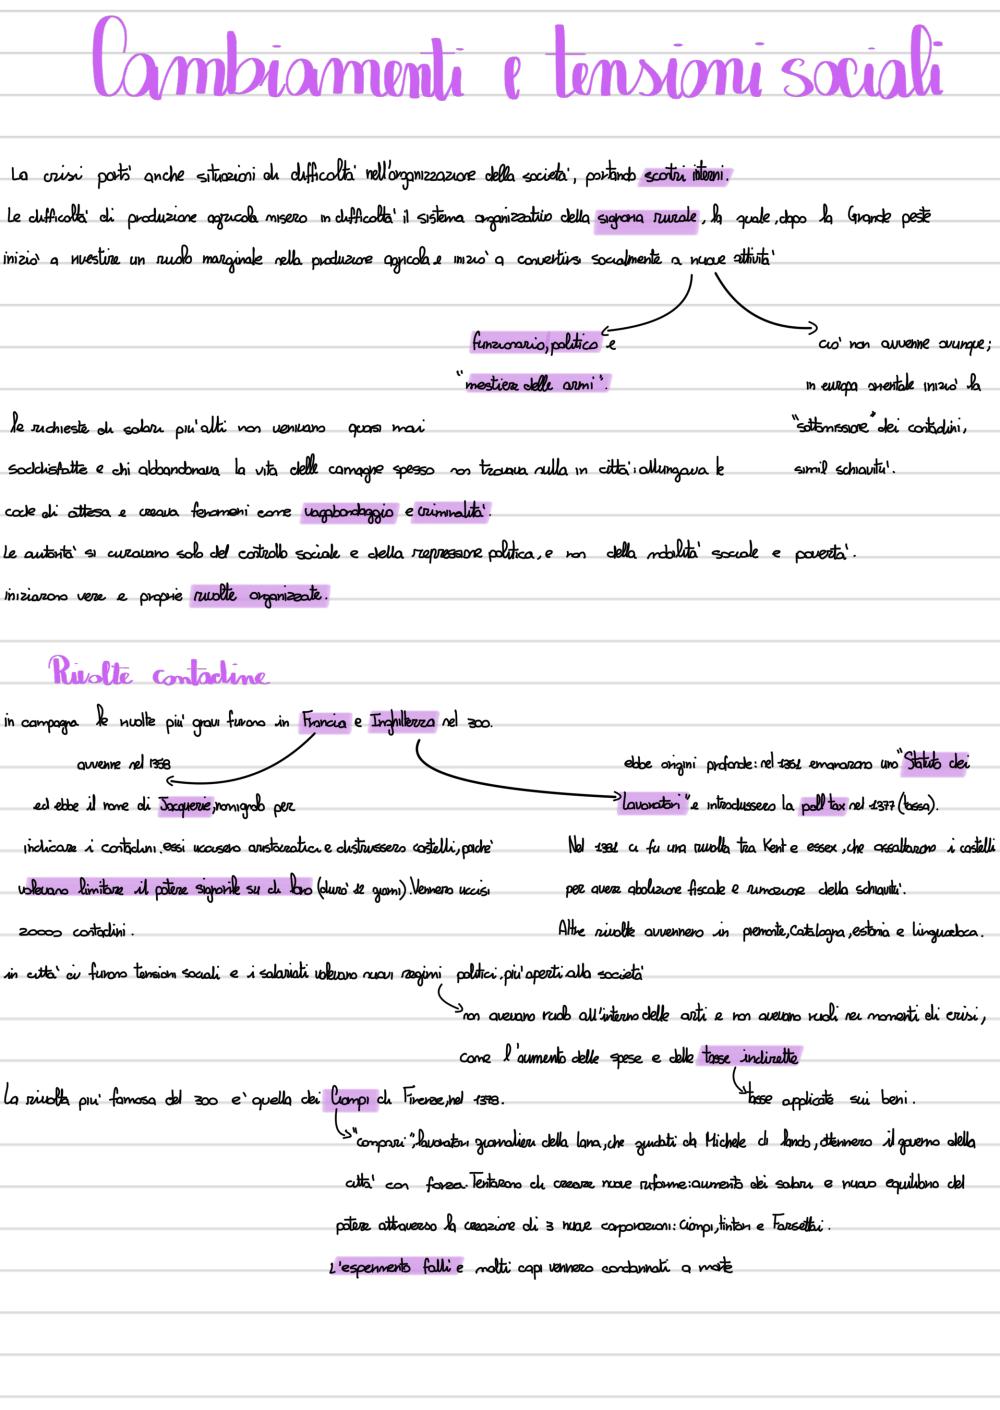 Cambiamenti e tensioni sociali
La crisi portò anche situazioni di difficoltà nell'organizzazione della società, portando scontri interni.
Le difficoltà di produzione agricola misero in difficoltà il sistema organizzativo della signoria rurale, la quale, dopo la Grande peste
iniziò a rivestire un ruolo marginale nella produzione agricola e iniziò a convertirsi socialmente a nuove attività
funzionario, politico e
"mestiere delle armi".
ciò non avvenne ovunque;
in europa orientale iniziò la
"sottomissione" dei contadini,
simil schiavitù.
le richieste di salari più alti non venivano quasi mai
soddisfatte e chi abbandonava la vita delle campagne spesso non trovava nulla in città: allungava le
code di attesa e creava fenomeni come vagabondaggio e criminalità.
Le autorità si curavano solo del controllo sociale e della repressione politica, e non della mobilità sociale e povertà.
iniziarono vere e proprie rivolte organizzate.
Rivolte contadine
in campagna le rivolte più gravi furono in Francia e Inghilterra nel 300.
avvenne nel 1358
ed ebbe il nome di Jacquerie, nomignolo per
indicare i contadini. essi uccisero aristocratici e distrussero castelli, poiché
volevano limitare il potere signorile su di loro (durò 12 giorni). Vennero uccisi
20000 contadini.
ebbe origini profonde: nel 1351 emanarono uno "Statuto dei
lavoratori" e introdussero la poll tax nel 1377 (tassa).
Nel 1381 ci fu una rivolta tra Kent e essex, che assaltarono i castelli
per avere abolizione fiscale e rimozione della schiavitù.
Altre rivolte avvennero in piemonte, Catalogna, estonia e linguadoca.
in città ci furono tensioni sociali e i salariati volevano nuovi regimi politici, più aperti alla società
non avevano ruolo all'interno delle arti e non avevano ruoli nei momenti di crisi,
come l'aumento delle spese e delle tasse indirette
tasse applicate sui beni.
La rivolta più famosa del 300 e' quella dei Ciompi di Firenze, nel 1378.
"compari", lavoratori giornalieri della lana, che guidati da Michele di lando, ottennero il governo della
città con forza. Tentarono di creare nuove riforme: aumento dei salari e nuovo equilibrio del
potere attraverso la creazione di 3 nuove corporazioni: Ciompi, tintori e Farsettai.
L'esperimento fallì e molti capi vennero condannati a morte